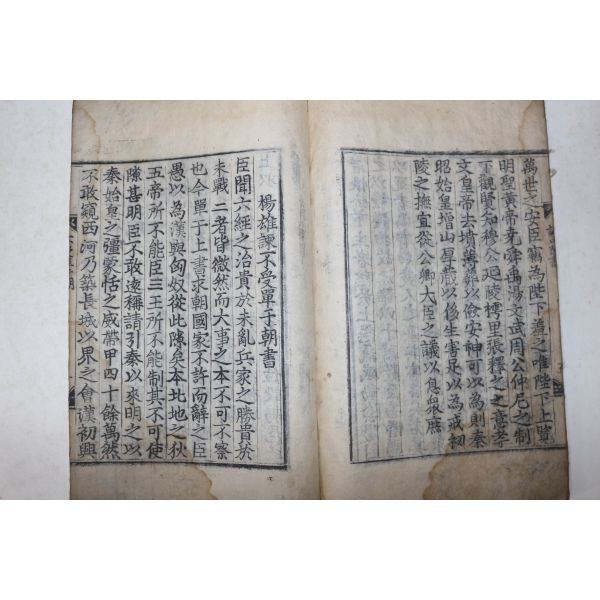 萬世之安臣竊為陛下羞之唯陛下上覽
明聖黃帝堯舜禹湯文武周公仲尼之制
下觀賢知穆公延陵樗里張釋之之意孝
文皇帝去墳薄葬以儉安神可以為則秦
昭始皇增山厚葬以侈生害足以為戒初
陵之撫宜從公卿大臣之議以息衆庶
楊雄諫不受單于朝書
臣聞六經之治貴於未亂兵家之勝貴於
未戰二者皆微然而大事之本不可不察
也今單于上書求朝國家不許而辭之臣
愚以為漢與匈奴從此隙矣本北地之狄
五帝所不能臣三王所不能制其不可使
隙甚明臣不敢遠稱請引秦以來明之以
秦始皇之彊蒙恬之威帶甲四十餘萬然
不敢窺西河乃築長城以界之會漢初興